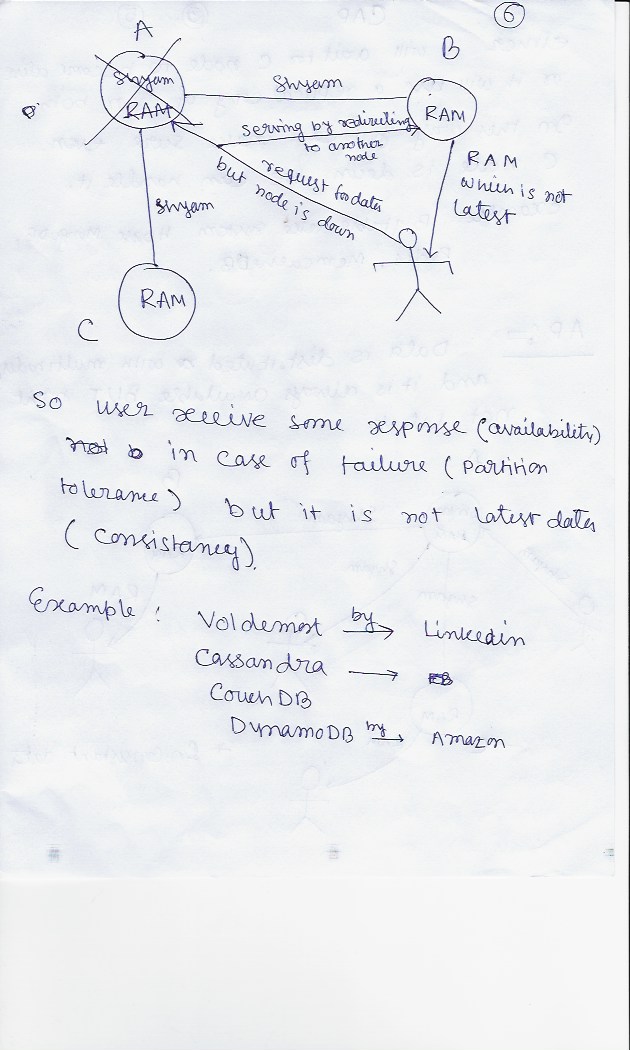 6
A
B
Shyam
RAM
Shyam
RAM
serving by redirecting
to another
node
request for data
but node is down
RAM
which is not
latest
Shyam
RAM
C
So user receive some response (availability)
in case of failure (Partition
tolerance) but it is not latest data
(Consistancy).
Example : Voldemort by → Linkedin
Cassandra →
CouchDB
DynamoDB by → Amazon